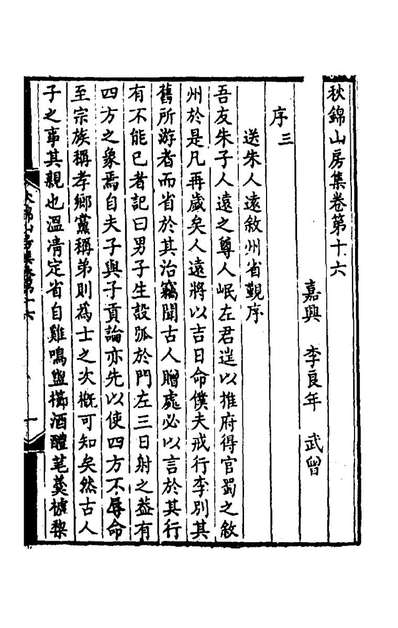 秋錦山房集卷第十六
嘉興 李良年 武曾
序三
送朱人遠敘州省觀序
吾友朱子人遠之尊人岷左君遑以推府得官蜀之敘
州於是凡再歲矣人遠將以吉日命僕夫戒行李別其
舊所游者而省於其治竊聞古人贈處必以言於其行
有不能已者記曰男子生設弧於門左三日射之葢有
四方之象焉自夫子與子貢論亦先以使四方不辱命
至宗族稱孝鄉黨稱弟則為士之次槪可知矣然古人
子之事其親也溫凊定省自雞鳴盥櫛酒醴芼羹榛栗
秋錦山房集卷第十六
一